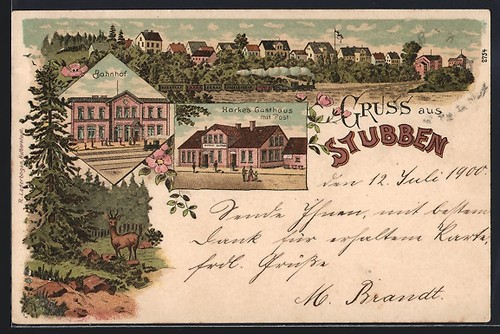 Bahnhof
Harkes Gasthaus
mit Post
GRUSS aus
STUBBEN
2754
den 12. Juli 1900.
Sende Ihnen, mit bestem
Dank für erhaltem Karte,
frdl. Grüße
M. Brandt.